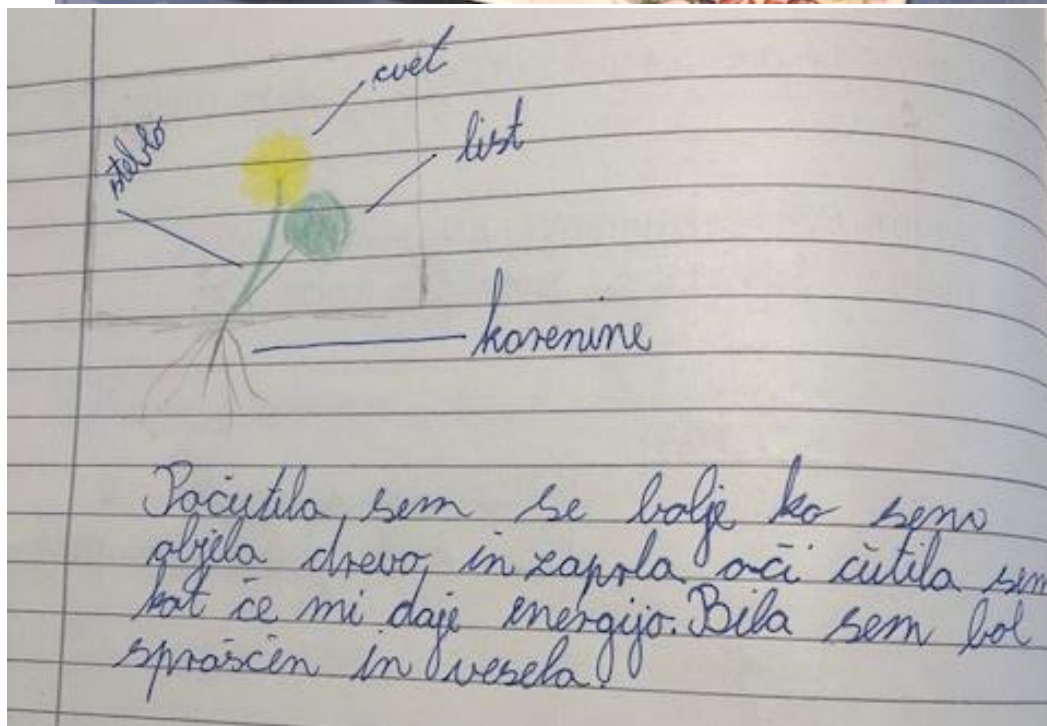 cvet
list
steblo
korenine
Počutila sem se bolje ko sem
objela drevo, in zaprla oči čutila sem
kot če mi daje energijo. Bila sem bol
sprosčen in vesela.